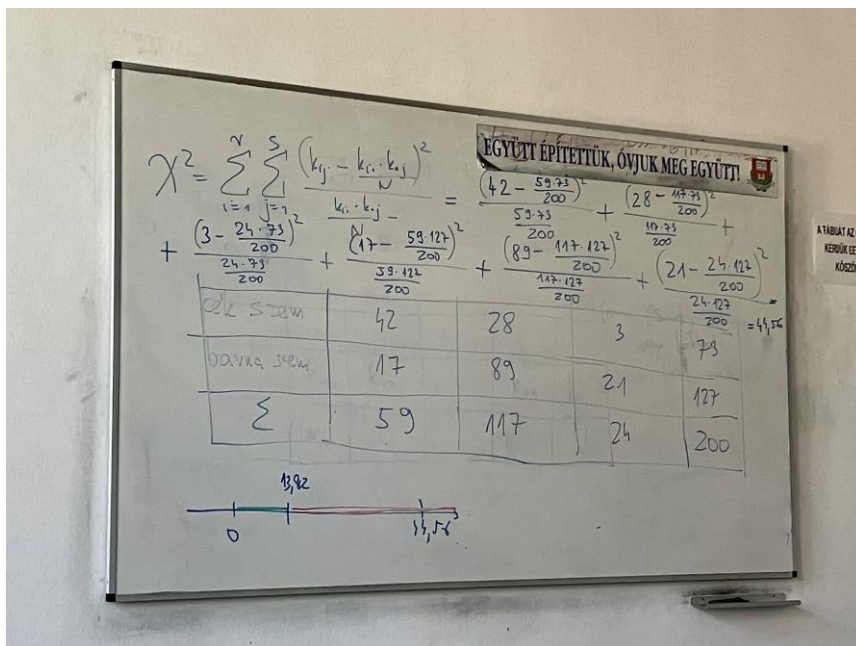 EGYÜTT ÉPÍTETTÜK, ÓVJUK MEG EGYÜTT!
χ² = Σ_{i=1}^{r} Σ_{j=1}^{s} (k_ij - (k_i. · k_.j)/N)² / ((k_i. · k_.j)/N) = (42 - 59·73/200)² / (59·73/200) + (28 - 117·73/200)² / (117·73/200) +
+ (3 - 24·73/200)² / (24·73/200) + (17 - 59·127/200)² / (59·127/200) + (89 - 117·127/200)² / (117·127/200) + (21 - 24·127/200)² / (24·127/200) =
= 44,56
kék szem 42 28 3 73
barna szem 17 89 21 127
Σ 59 117 24 200
13,82
0 44,56
A TÁBLÁT AZ
KÉRJÜK
KÖSZÖ